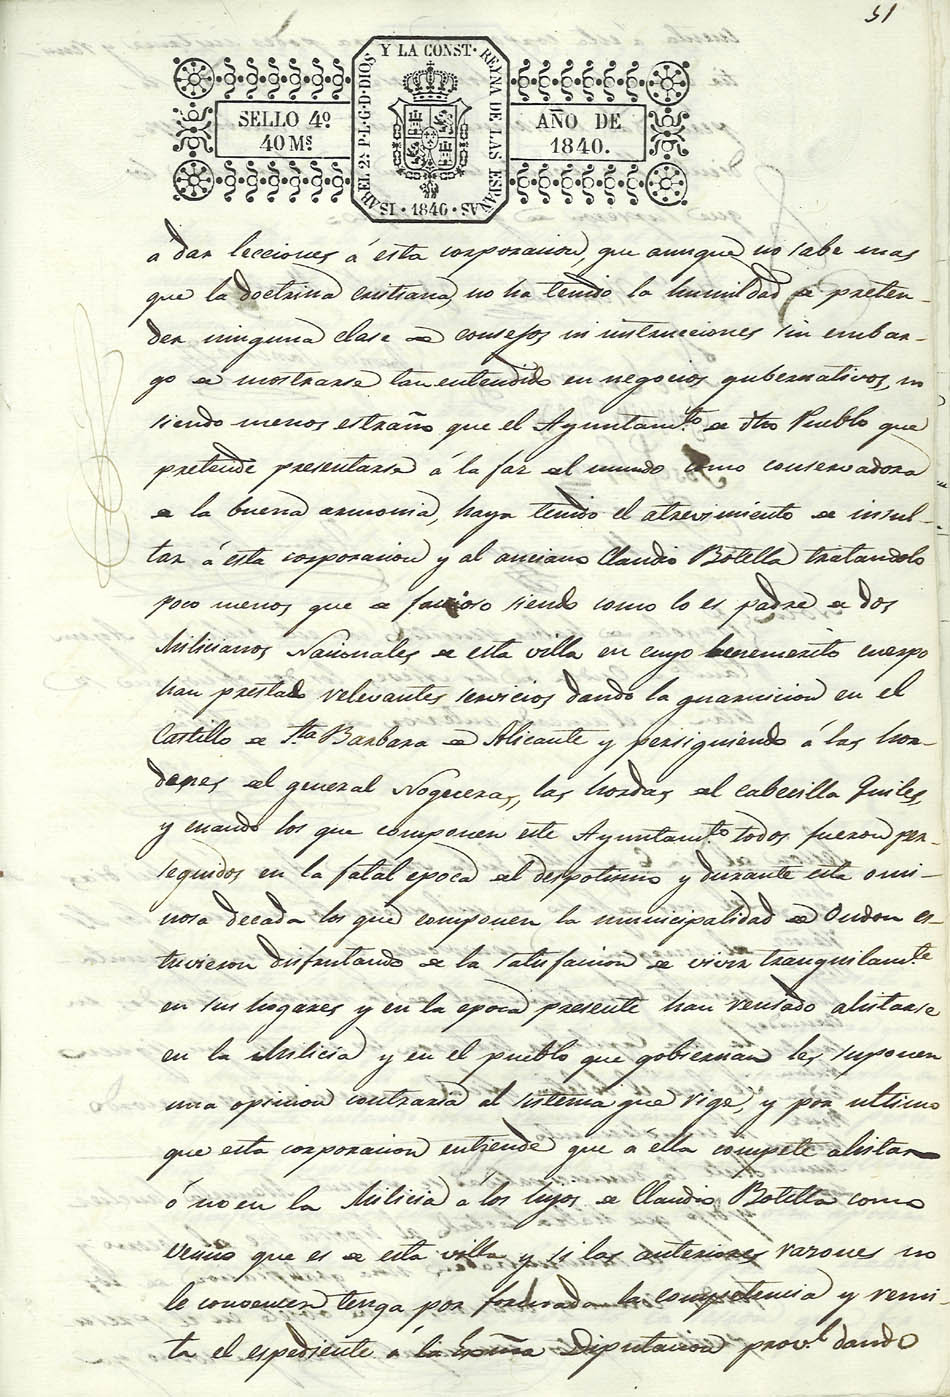 51
ISABEL 2ª P·L·G·D·DIOS Y LA CONST· REYNA DE LAS ESPAÑAS
SELLO 4º
40 Ms
AÑO DE
1840.
· 1840 ·
á dar lecciones á esta corporacion, que aunque no sabe mas
que la doctrina cristiana, no ha tenido la humildad de preten-
der ninguna clase de consejos ni instrucciones sin embar-
go de mostrarse tan entendido en negocios gubernativos, no
siendo menos estraño que el Ayuntamto de dho Pueblo que
pretende presentarse á la faz del mundo como conservadora
de la buena armonia, haya tenido el atrevimiento de insul-
tar á esta corporacion y al anciano Claudio Botella tratandolo
poco menos que de faccioso siendo como lo es padre de dos
Milicianos Nacionales de esta villa en cuyo benemerito cuerpo
han prestado relevantes servicios dando la guarnicion en el
Castillo de Sta Barbara de Alicante y persiguiendo á las hor-
denes del general Nogueras, las hordas del cabecilla Quiles,
y cuando los que componen este Ayuntamto todos fueron per-
seguidos en la fatal epoca del despotismo y durante esta omi-
nosa decada los que componen la municipalidad de Ondon es-
tuvieron disfrutando de la satisfaccion de vivir tranquilamte
en sus hogares y en la epoca presente han reusado alistarse
en la Milicia y en el pueblo que gobiernan les suponen
una opinion contraria al sistema que rige, y por ultimo
que esta corporacion entiende que á ella compete alistar
ó no en la Milicia á los hijos de Claudio Botella como
vecino que es de esta villa y si las anteriores razones no
le convencen tenga por formada la competencia y remi-
ta el espediente á la Exma Diputacion provl dando